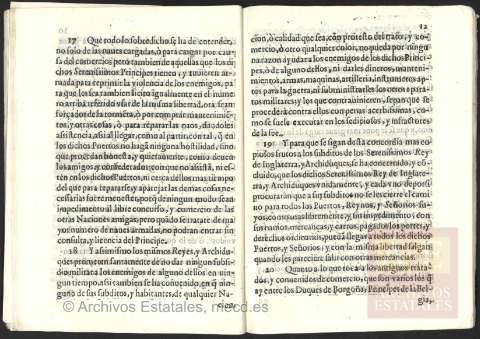 17 Que todo lo sobredicho se ha de entender,
no solo de las naues cargadas, ò para cargar por cau-
sa del comercio, pero tambien de aquellas que los di-
chos Serenissimos Principes tienen, y tuuieren ar-
mada para reprimir la violencia de los enemigos, pa-
ra que los sea tambien licito a qualquiera en el mismo
referido vsar de la misma libertad, ora sean for-
çados de la tormenta, ò por comprar mantenimien-
tos, y otras cosas, ò para reparar las naos, asi
assistencia, assi al llegar, como al partir
en los dichos Puertos no haga ninguna hostilidad, sino
que procedan honesta, y quietamente, como deuen
los amigos, y confederados; con que no assistã, ni es-
tèn en los dichos Puertos, ni cerca dellos mas tiempo
del que para repararse, y aparejar las demas cosas ne-
cessarias fuere menester, porq̃ de ningun modo sean
impedimento al libre concurso, y comercio de las
otras Naciones amigas; pero quãdo se tratare de ma-
yor numero de naues armadas, no podran entrar sin
consulta, y licencia del Principe.
18 Y assimismo los mismos Reyes, y Archidu-
ques prometen santamente de no dar ningun subsi-
dio militar a los enemigos de alguno dellos en ningun
tiempo, assi tambien se ha conuenido, en q̃ ningu-
no de sus subditos, y habitantes, de qualquier Na-
cion,
12
cion, ò calidad que sea, con pretexto del trato, y co-
mercio, ò otro qualquier color, no pueda por ningu-
na razon ayudar a los enemigos de los dichos Princi-
pes, ò de alguno dellos, ni darles dineros, manteni-
mientos, armas, maquinas, artilleria, instrumentos ap-
tos para la guerra, ni subministrarles los otros aparatos
militares; y los que contrauinieren, sepan que se
procederà contra ellos con penas acerbissimas, co-
mo se suele executar en los sediciosos, y infractores
de la fee.
19 Y para que se sigan desta concordia mas co-
piosos frutos, a los subditos de los Serenissimos Rey
de Inglaterra, y Archiduques, se ha concertado, y cõ-
cluido, que los dichos Serenissimos Rey de Inglater-
ra, y Archiduques vnidamente, y cada vno de por si
procuraràn que a los subditos no se les cierre el cami-
no para todos los Puertos, Reynos, y Señorios su-
yos, con que libremente, y sin impedimento, con
sus naos, mercancias, y carros, pagando los portes, y
derechos ordinarios, puedã llegar a todos los dichos
Puertos, y Señorios, y con la misma libertad salgan
quando les pareciere con otras mercancias.
20 Quanto a lo que toca a los antiguos trata-
dos, y conuenios de comercio, que son varios los q̃
ay entre los Duques de Borgoña, y Principes de la Bel-
gia,
© Archivos Estatales, mecd.es
ARCHIVOS
ESTATALES